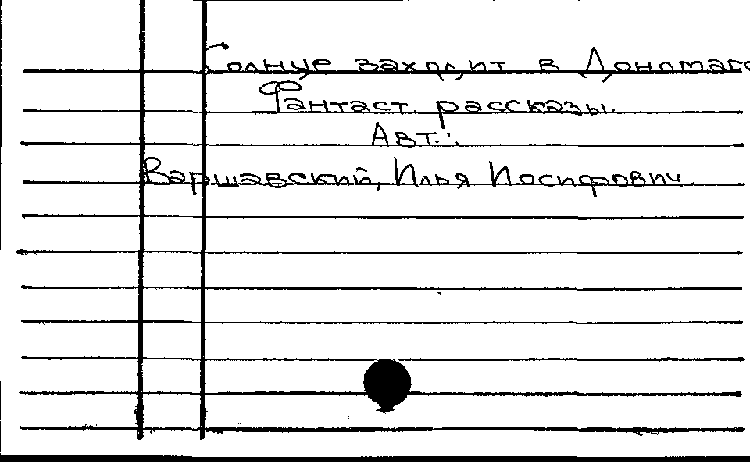 Солнце заходит в Дономаге
Фантаст. рассказы.
Авт.:
Варшавский, Илья Иосифович